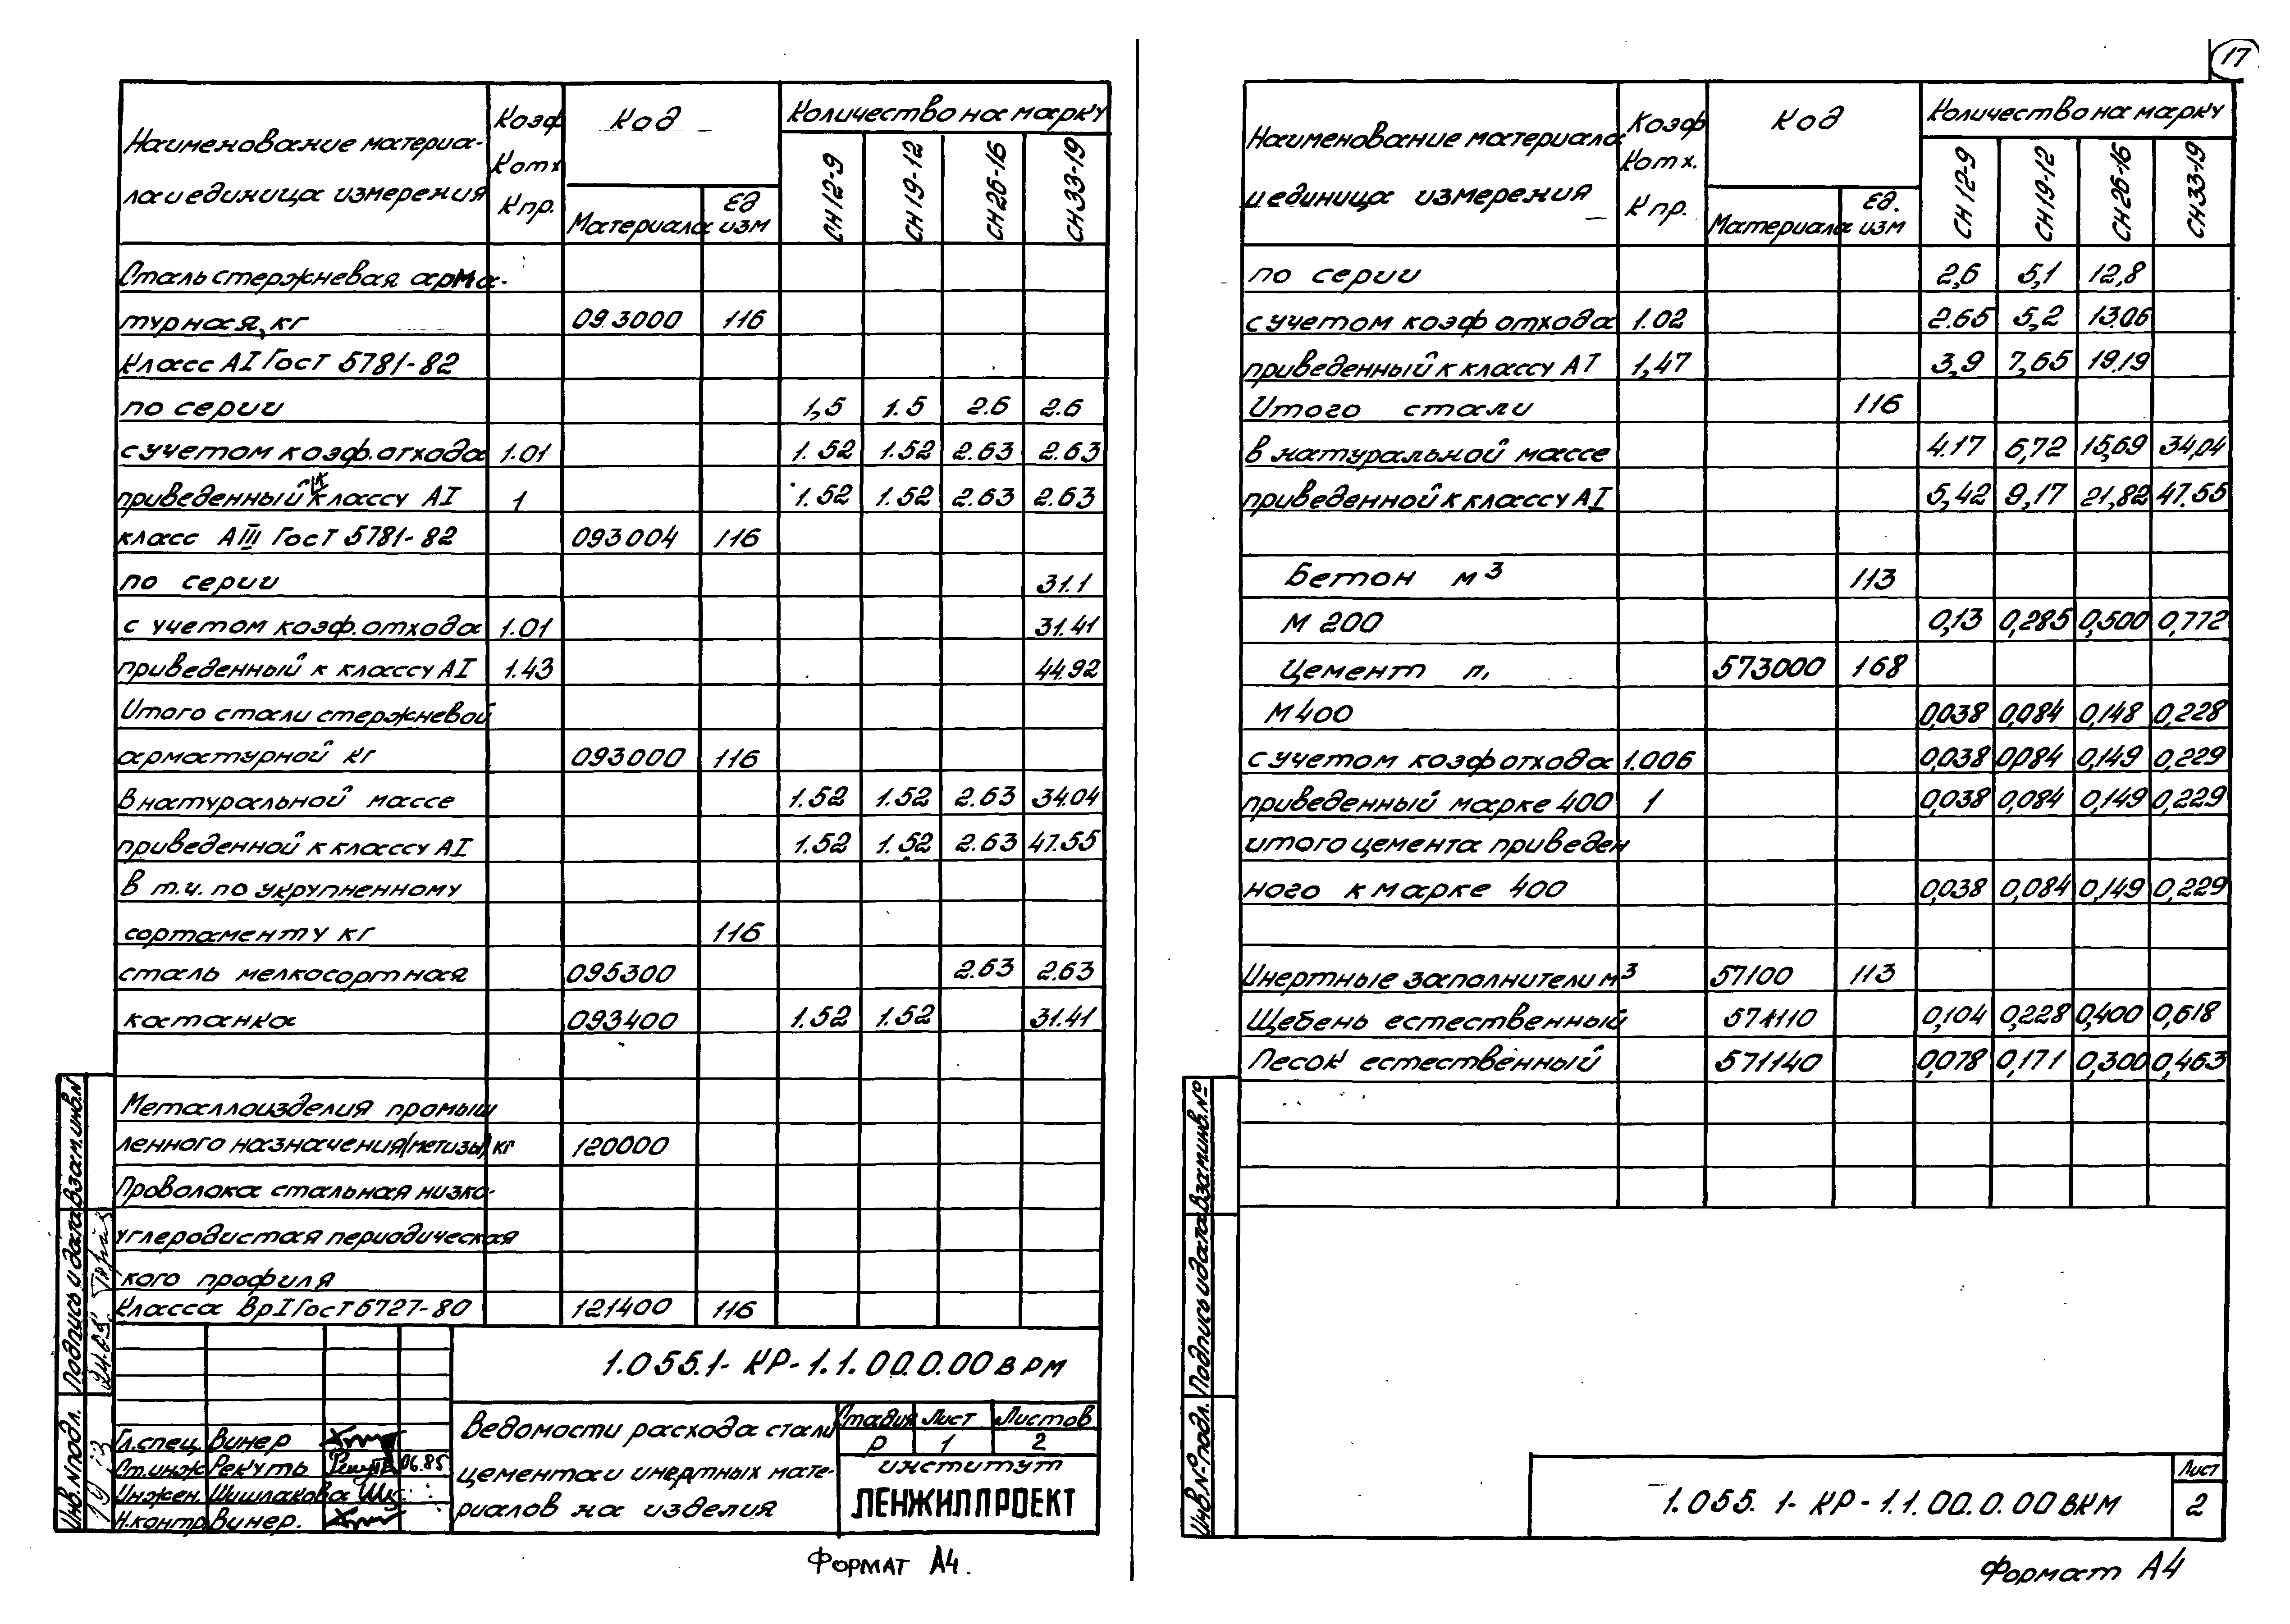 17
Наименование материа-
ла и единица измерения
Коэф
Котх
Кпр.
Код
Материала
Ед
изм
Количество на марку
СН12-9
СН19-12
СН26-16
СН33-19
Сталь стержневая арма-
турная, кг 093000 116
Класс АI Гост 5781-82
по серии 1,5 1.5 2.6 2.6
с учетом коэф. отхода 1.01 1.52 1.52 2.63 2.63
приведенный к классу АI 1 1.52 1.52 2.63 2.63
класс АIII Гост 5781-82 093004 116
по серии 31.1
с учетом коэф. отхода 1.01 31.41
приведенный к классу АI 1.43 44.92
Итого стали стержневой
арматурной кг 093000 116
в натуральной массе 1.52 1.52 2.63 34.04
приведенной к классу АI 1.52 1.52 2.63 47.55
в т.ч. по укрупненному
сортаменту кг 116
сталь мелкосортная 095300 2.63 2.63
катанка 093400 1.52 1.52 31.41
Металлоизделия промыш
ленного назначения (метизы) кг 120000
Проволока стальная низко-
углеродистая периодическая
кого профиля
Класса ВрI Гост 6727-80 121400 116
1.055.1-КР-1.1.00.0.00 ВРМ
Ведомости расхода стали
цемента и инертных мате-
риалов на изделия
Стадия Лист Листов
Р 1 2
институт
ЛЕНЖИЛПРОЕКТ
Гл.спец. Винер
Ст.инж Рекуть 06.85
Инжен. Шишлакова
Н.контр Винер.
Инв.N подл. Подпись и дата Взам.инв.N
Формат А4.
Наименование материала
и единица измерения
Коэф
Котх.
Кпр.
Код
Материала
Ед.
изм
Количество на марку
СН12-9
СН19-12
СН26-16
СН33-19
по серии 2,6 5,1 12,8
с учетом коэф отхода 1.02 2.65 5,2 13.06
приведенный к классу АI 1,47 3,9 7,65 19.19
Итого стали 116
в натуральной массе 4.17 6,72 15,69 34,04
приведенной к классу АI 5,42 9,17 21,82 47.55
Бетон м³ 113
М 200 0,13 0,285 0,500 0,772
Цемент т, 573000 168
М400 0,038 0,084 0,148 0,228
с учетом коэф отхода 1.006 0,038 0,084 0,149 0,229
приведенный марке 400 1 0,038 0,084 0,149 0,229
итого цемента приведен
ного к марке 400 0,038 0,084 0,149 0,229
Инертные заполнители м³ 57100 113
Щебень естественный 571110 0,104 0,228 0,400 0,618
Песок естественный 571140 0,078 0,171 0,300 0,463
Инв.Nº подл. Подпись и дата Взам.инв.Nº
1.055.1-КР-1.1.00.0.00 ВКМ
Лист
2
Формат А4